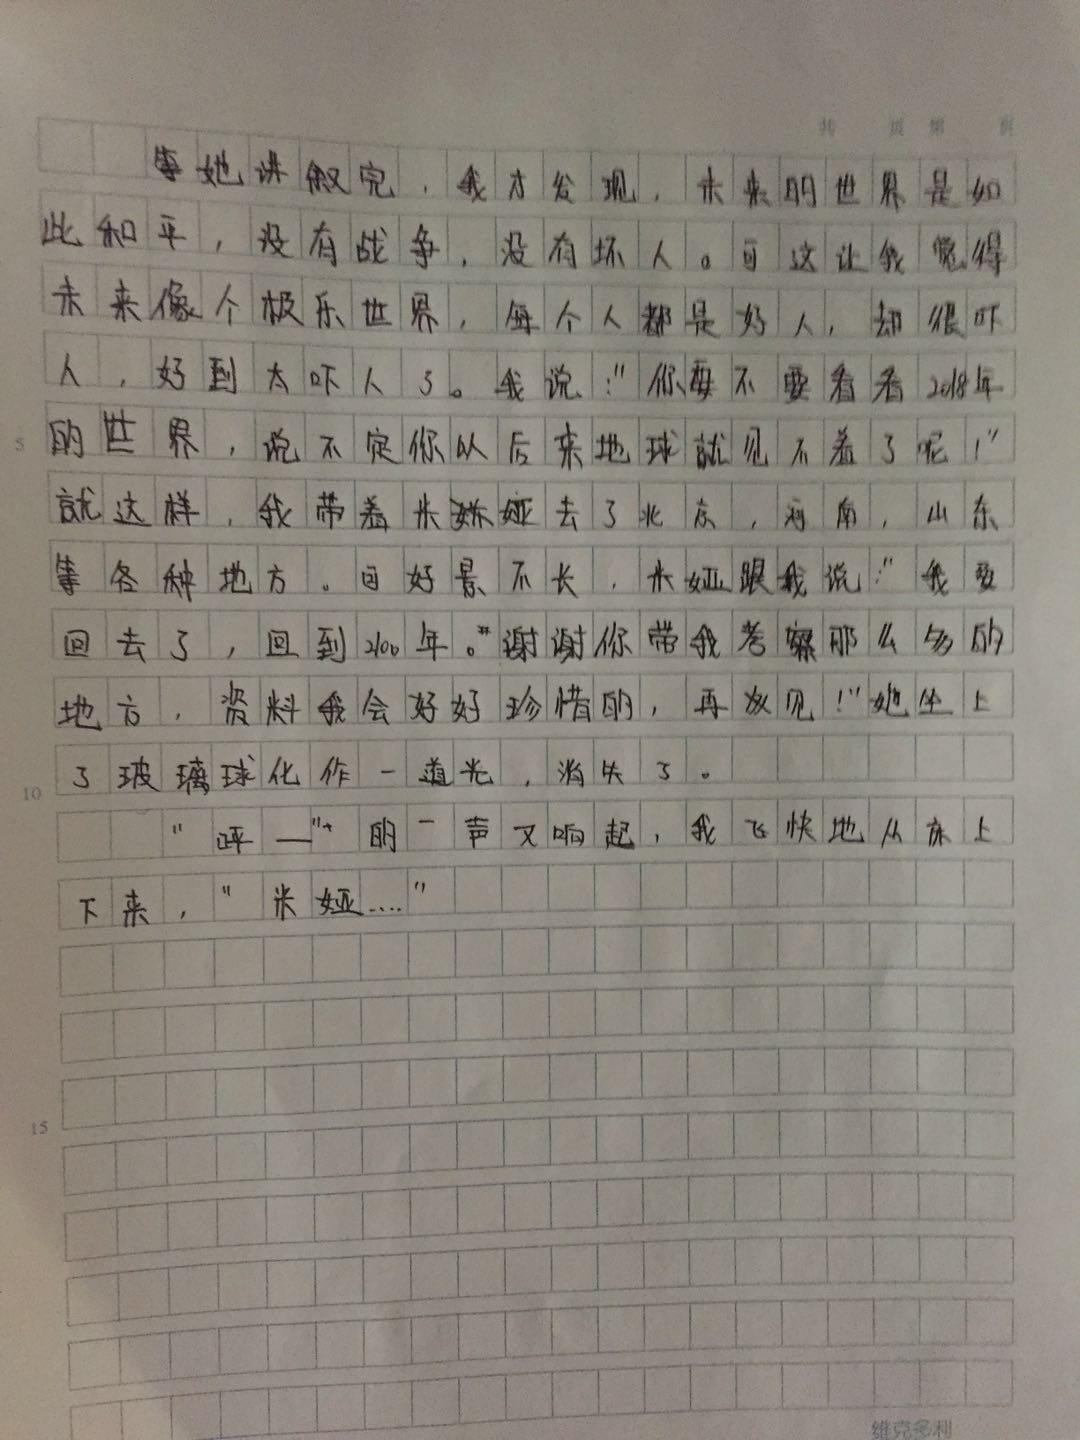 共 页 第 页
等她讲叙完，我才发现，未来的世界是如
此和平，没有战争，没有坏人。可这让我觉得
未来像个极乐世界，每个人都是好人，却很吓
人，好到太吓人了。我说："你要不要看看2018年
5 的世界，说不定你以后来地球就见不着了呢！"
就这样，我带着米娅去了北京，河南，山东
等各种地方。可好景不长，米娅跟我说："我要
回去了，回到2100年。谢谢你带我考察那么多的
地方，资料我会好好珍惜的，再次见！"她坐上
10 了玻璃球化作一道光，消失了。
"呯—"的一声又响起，我飞快地从床上
下来，"米娅…."
15
维克多利